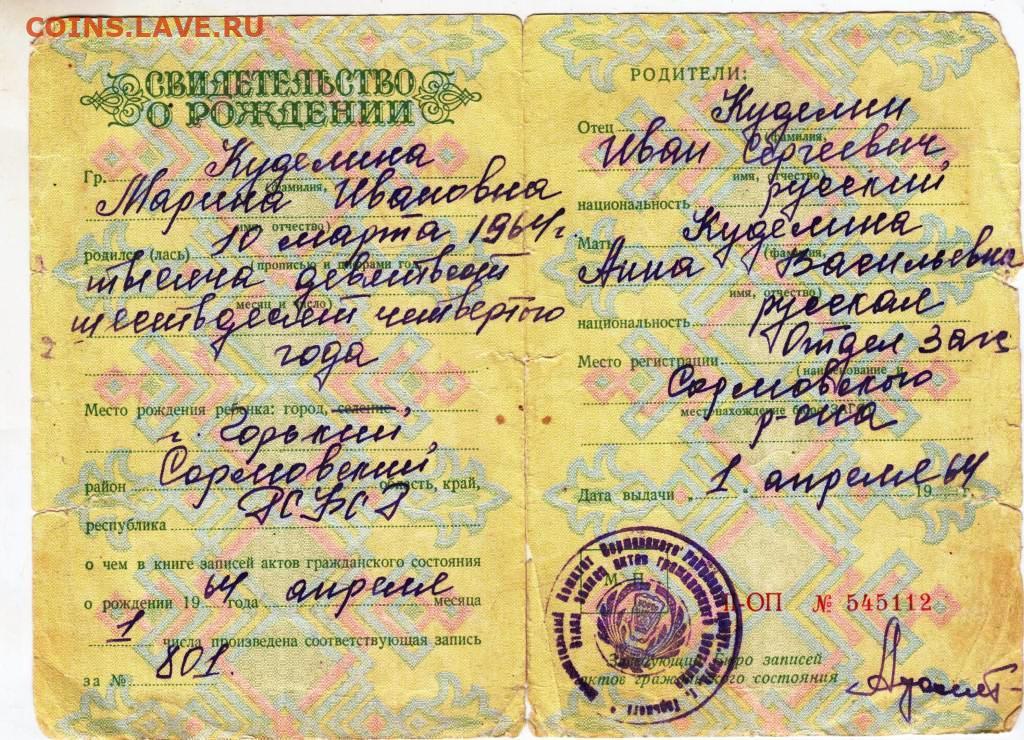 COINS.LAVE.RU
СВИДЕТЕЛЬСТВО
О РОЖДЕНИИ
Куделина
Гр.
(фамилия,
Марина Ивановна
имя, отчество)
родился (лась) 10 марта 1964 г.
(прописью и цифрами год,
тысяча девятьсот
месяц и число)
шестьдесят четвертого
года
Место рождения ребенка: город, селение
г. Горький,
Сормовский
район область, край,
РСФСР
республика
о чем в книге записей актов гражданского состояния
о рождении 19 64 года апреля месяца
1 числа произведена соответствующая запись
за № 801.
РОДИТЕЛИ:
Отец Куделин
(фамилия,
Иван Сергеевич
имя, отчество)
национальность русский
Мать Куделина
(фамилия,
Анна Васильевна
имя, отчество)
национальность русская
Отдел Загс
Место регистрации
(наименование и
Сормовского
местонахождение бюро ЗАГСа)
р-она
Дата выдачи „ 1 " апреля 19 64 г.
М. П.
II-ОП № 545112
Заведующий Бюро записей
актов гражданского состояния
1
2